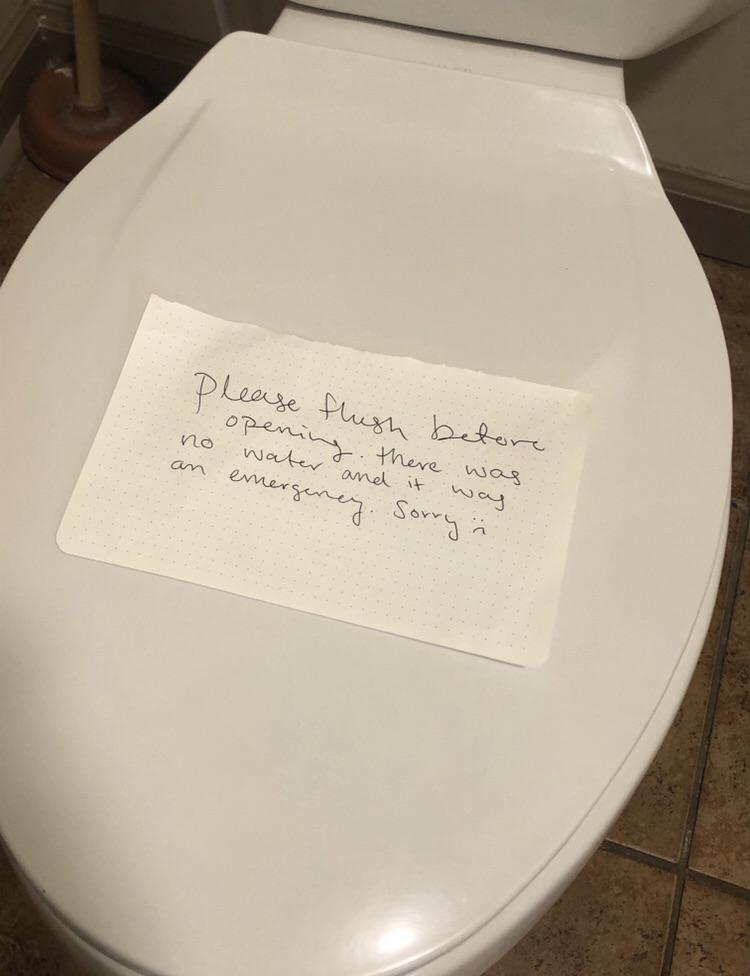 Please flush before
opening. there was
no water and it was
an emergency. Sorry :(